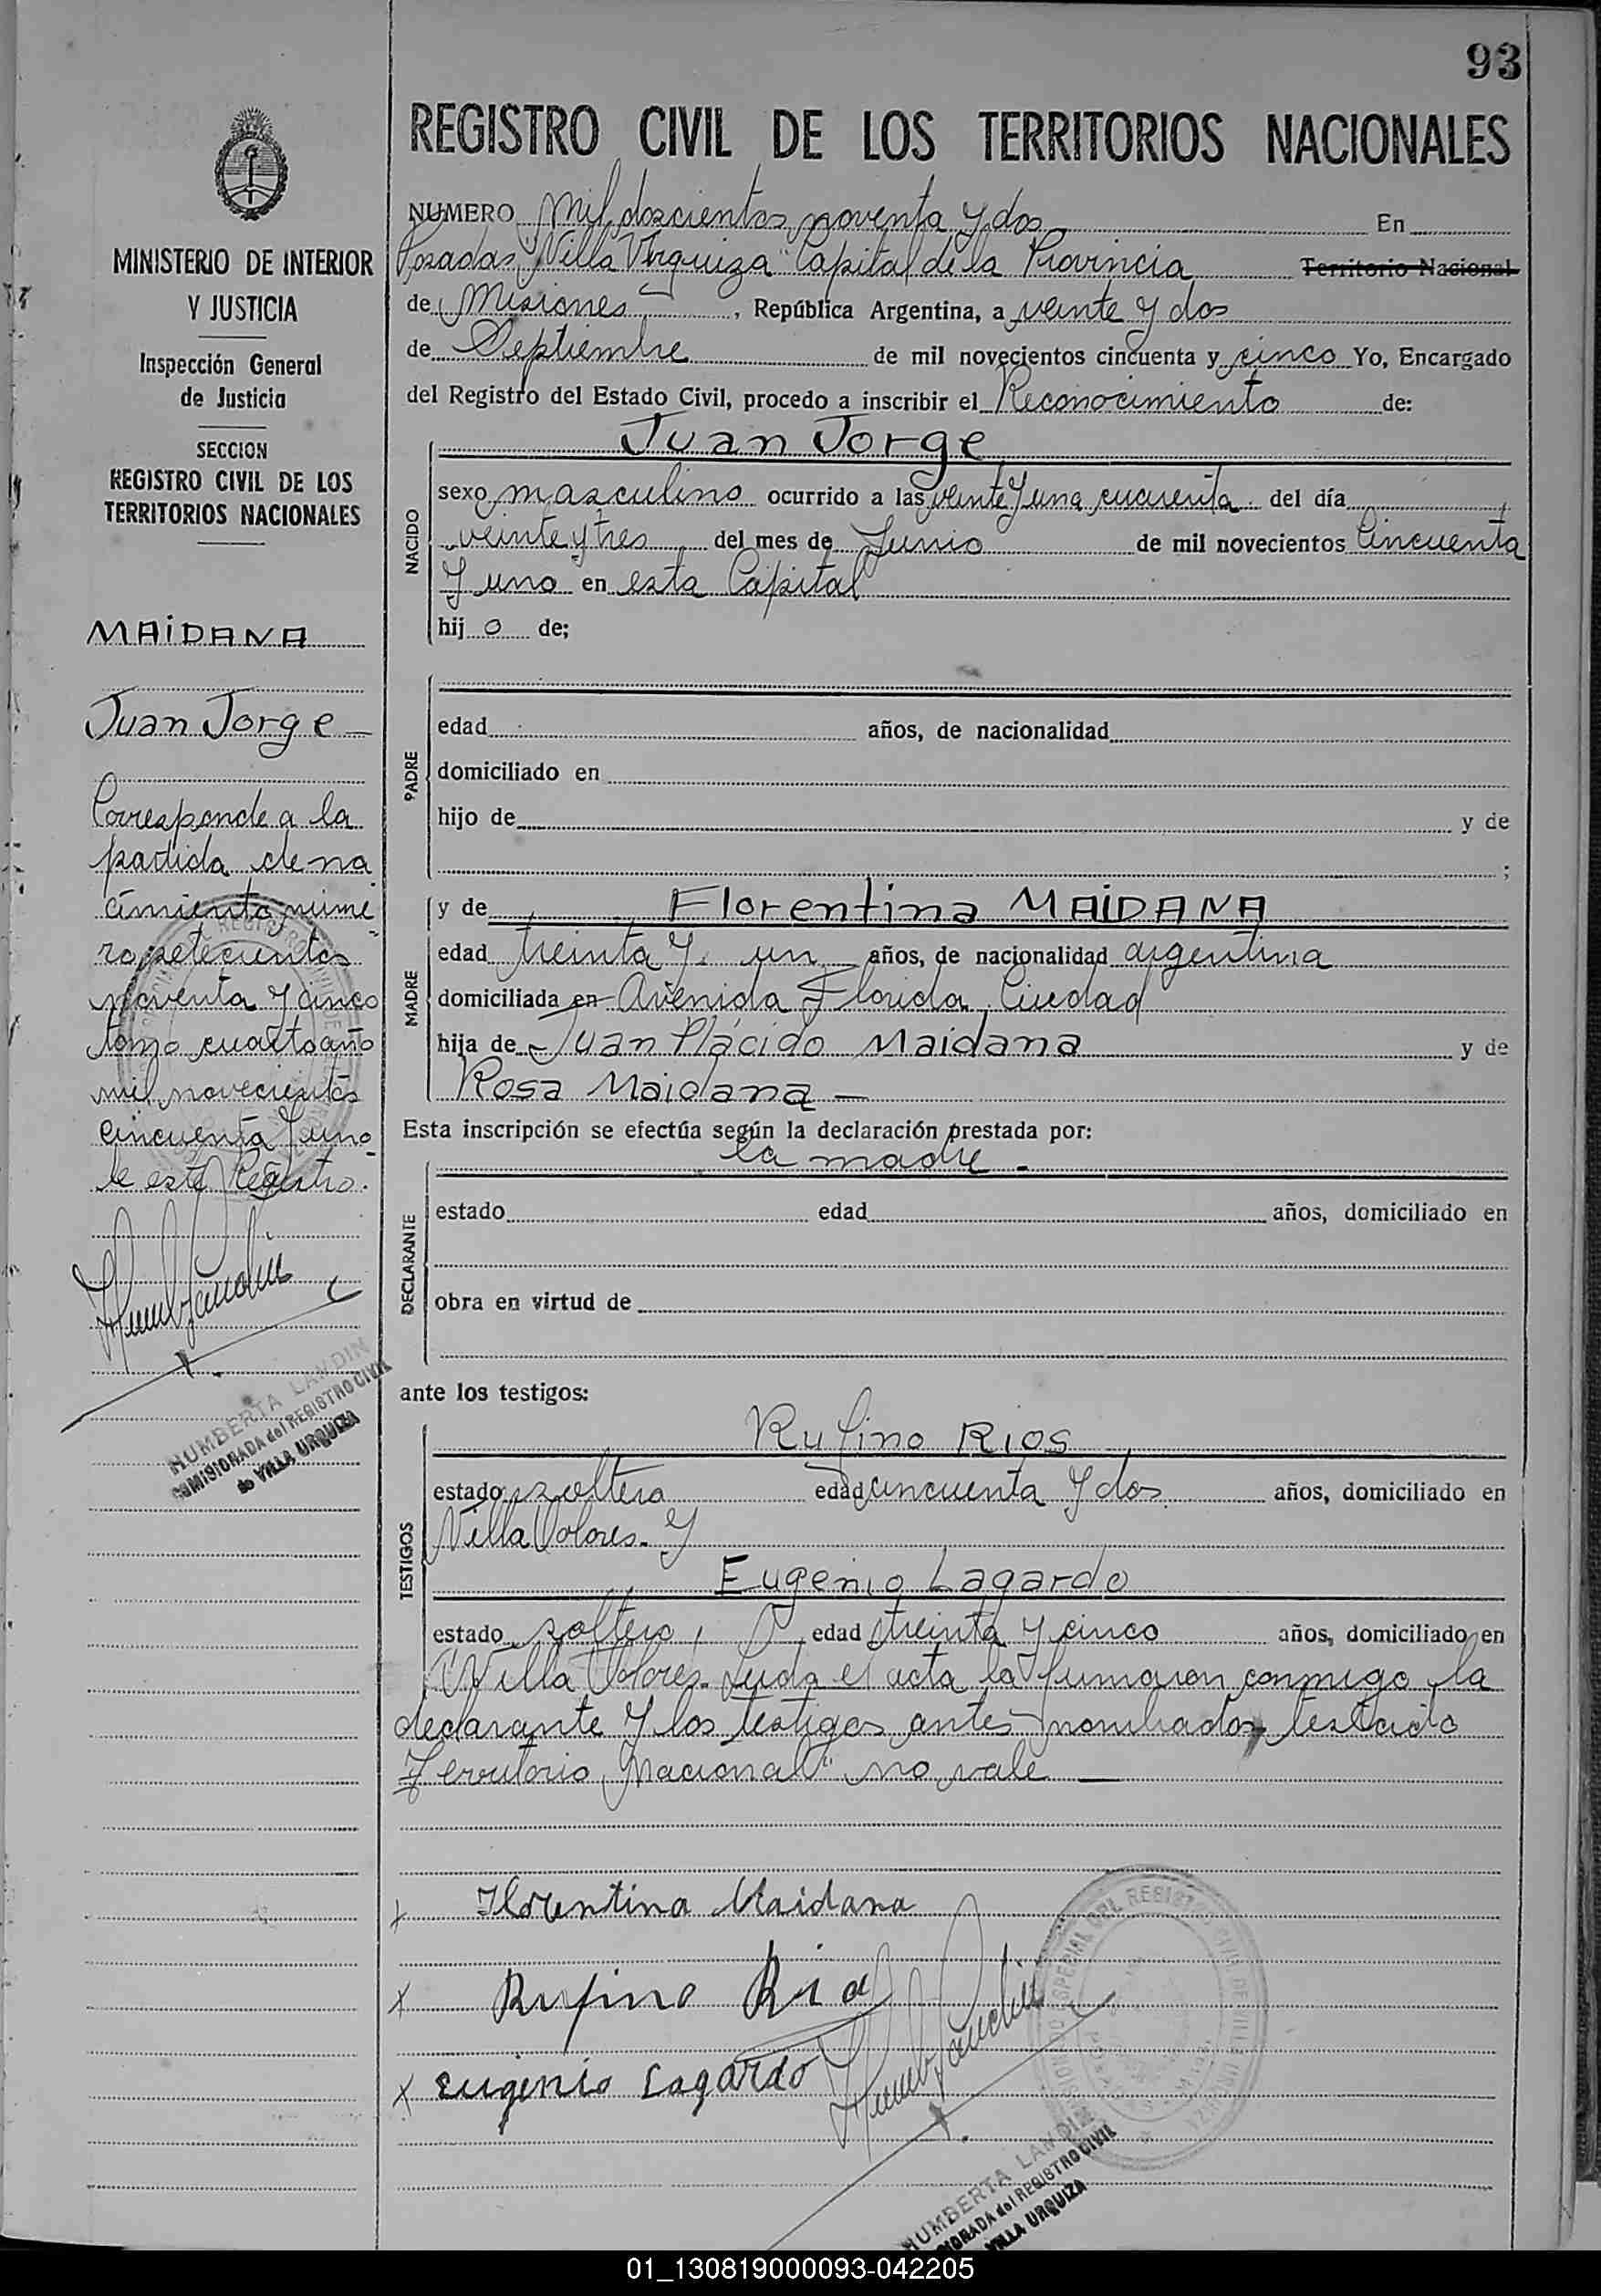 93
REGISTRO CIVIL DE LOS TERRITORIOS NACIONALES
NUMERO Mil doscientos noventa y dos En
Posadas, "Villa Urquiza" Capital de la Provincia Territorio Nacional
de Misiones, República Argentina, a veinte y dos
de Septiembre de mil novecientos cincuenta y cinco Yo, Encargado
del Registro del Estado Civil, procedo a inscribir el Reconocimiento de:
NACIDO
Juan Jorge
sexo masculino ocurrido a las veinte y una cuarenta del día
veinte y tres del mes de Junio de mil novecientos Cincuenta
y uno en esta Capital
hijo de;
PADRE
edad años, de nacionalidad
domiciliado en
hijo de y de
;
MADRE
y de Florentina MAIDANA
edad treinta y un años, de nacionalidad argentina
domiciliada en Avenida Florida, Ciudad
hija de Juan Plácido Maidana y de
Rosa Maidana
Esta inscripción se efectúa según la declaración prestada por:
DECLARANTE
la madre
estado edad años, domiciliado en
obra en virtud de
ante los testigos:
TESTIGOS
Rufino Rios
estado soltero edad cincuenta y dos años, domiciliado en
Villa Dolores. y
Eugenio Lagardo
estado soltero, edad treinta y cinco años, domiciliado en
Villa Dolores. Leida el acta la firmaron conmigo la
declarante y los testigos antes nombrados, testado
"Territorio Nacional" no vale
x Florentina Maidana
x Rufino Rio
x Eugenio Lagardo
HUMBERTA LANDIN
COMISIONADA del REGISTRO CIVIL
VILLA URQUIZA
MINISTERIO DE INTERIOR
Y JUSTICIA
Inspección General
de Justicia
SECCION
REGISTRO CIVIL DE LOS
TERRITORIOS NACIONALES
MAIDANA
Juan Jorge
Corresponde a la
partida de na
cimiento núme
ro setecientos
noventa y cinco
tomo cuarto año
mil novecientos
cincuenta y uno
de este Registro.
HUMBERTA LANDIN
COMISIONADA del REGISTRO CIVIL
de VILLA URQUIZA
01_130819000093-042205